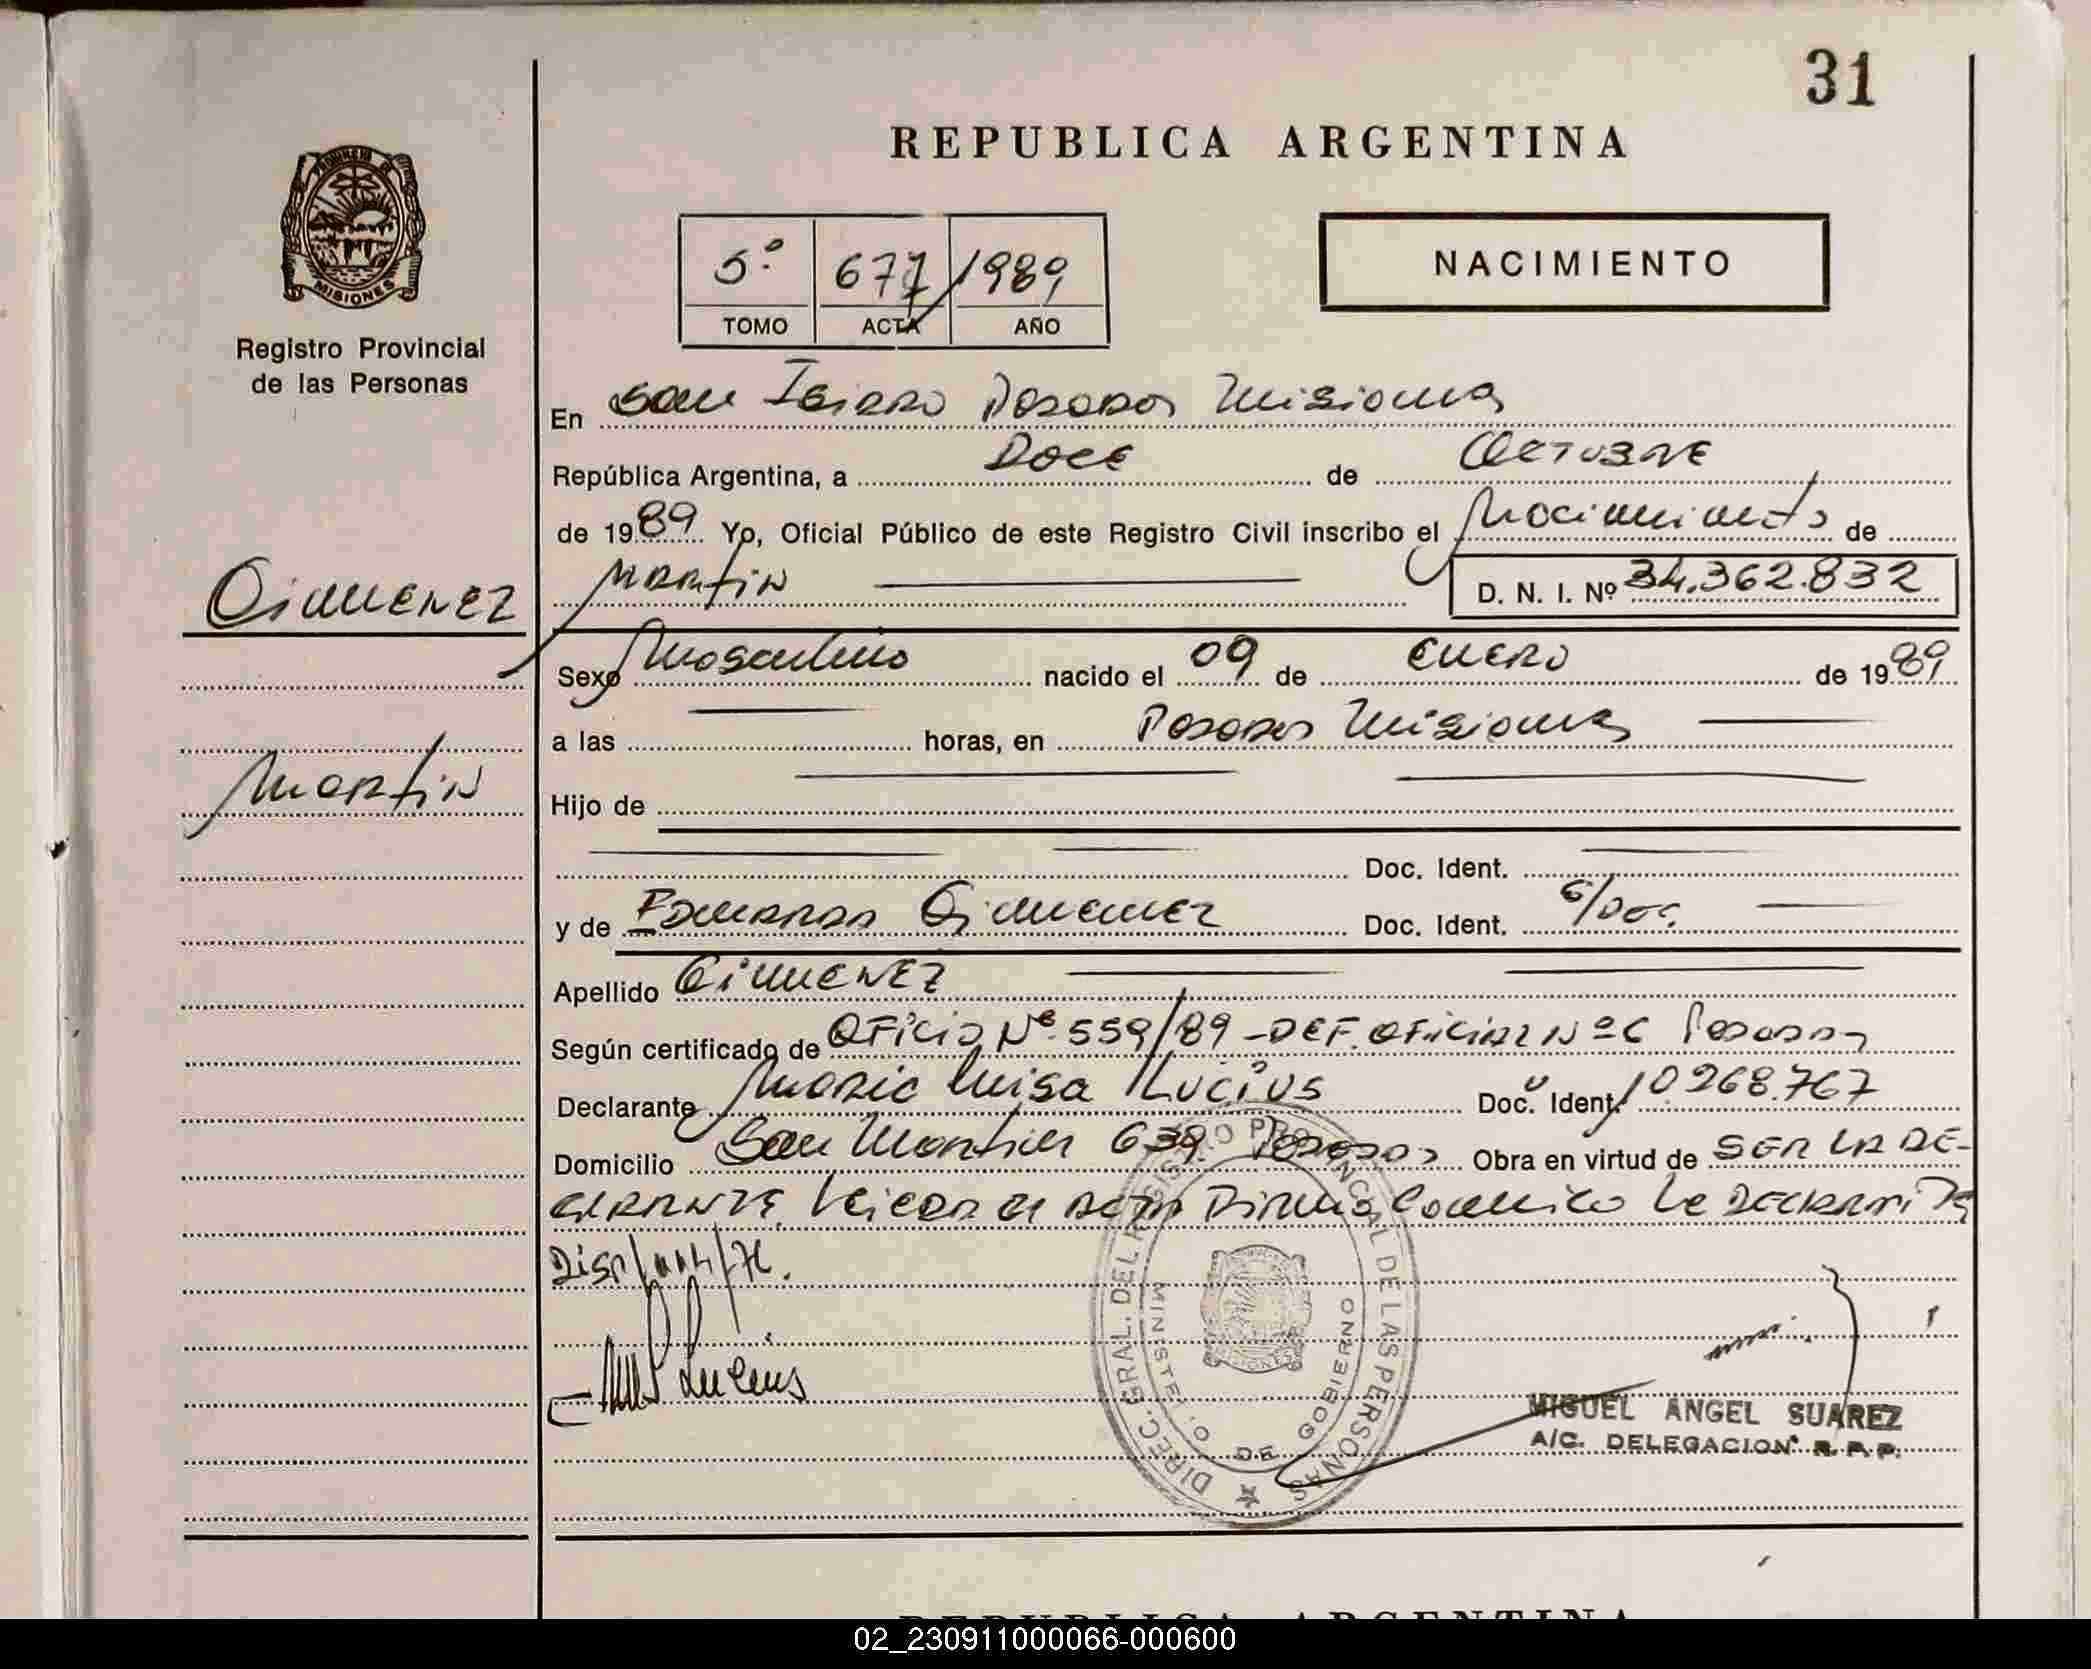 31
REPUBLICA ARGENTINA
PROVINCIA DE
MISIONES
Registro Provincial
de las Personas
5º 677/1989
TOMO ACTA AÑO
NACIMIENTO
En San Isidro Posadas Misiones
República Argentina, a Doce de Octubre
de 1989 Yo, Oficial Público de este Registro Civil inscribo el Nacimiento de
Martin
D. N. I. Nº 34.362.832
Gimenez
Martin
Sexo Masculino nacido el 09 de Enero de 1989
a las horas, en Posadas Misiones
Hijo de
Doc. Ident.
y de Gimenez Doc. Ident. S/Doc.
Apellido Gimenez
Según certificado de Oficio Nº 559/89 - DEF. OFICIAL Nº 6 Posadas
Declarante Maria Luisa Lucius Doc. Ident. 10268.767
Domicilio San Martin 639 Posadas Obra en virtud de SER LA DE-
CLARANTE, Leida el Acta Firma Conmigo La Declarante
Disp/
DIREC. GRAL. DEL REGISTRO PROVINCIAL DE LAS PERSONAS
MINISTERIO DE GOBIERNO
MISIONES
Lucius
MIGUEL ANGEL SUAREZ
A/C. DELEGACION R. P. P.
REPUBLICA ARGENTINA
02_230911000066-000600